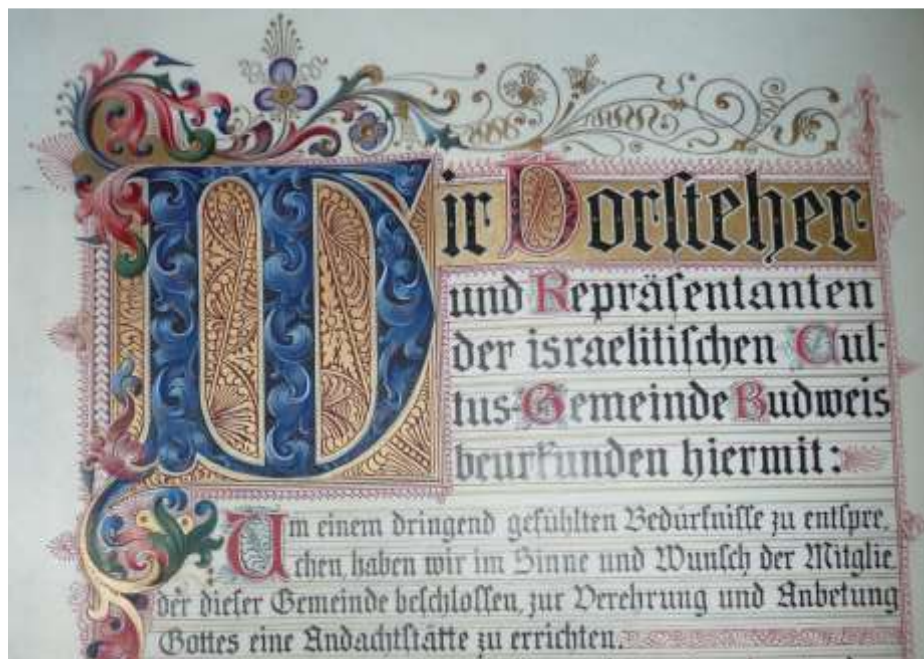 Wir Vorſteher
und Repräſentanten
der israelitiſchen Cul-
tus-Gemeinde Budweis
beurkunden hiermit:
Um einem dringend gefühlten Bedürfniſſe zu entſpre,
chen, haben wir im Sinne und Wunſch der Mitglie
der dieſer Gemeinde beſchloſſen, zur Verehrung und Anbetung
Gottes eine Andachtſtätte zu errichten.